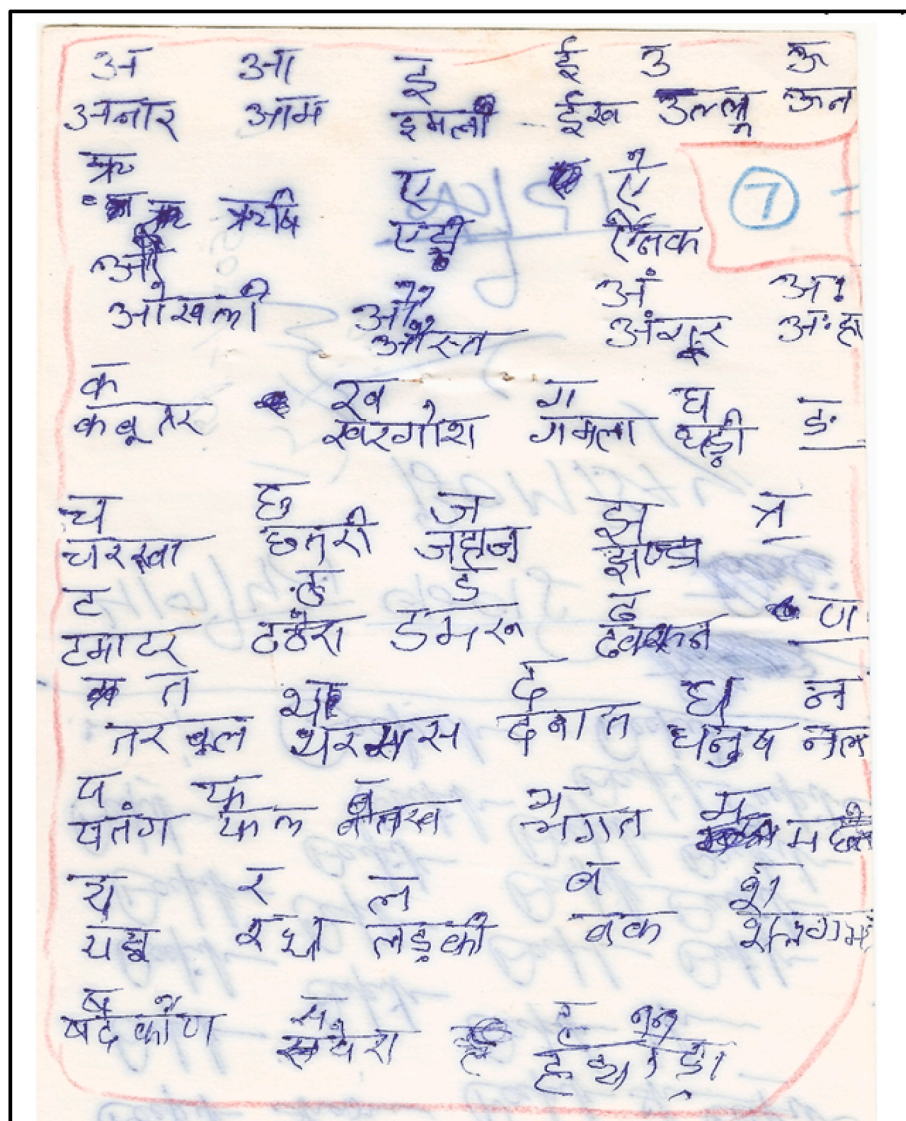 अ आ इ ई उ ऊ
अनार आम इमली ईख उल्लू ऊन
ऋ ए ऐ
ऋषि एड़ी ऐनक
7
ओ
ओखली औ अं अः
औरत अंगूर
क ख ग घ ङ
कबूतर खरगोश गमला घड़ी
च छ ज झ ञ
चरखा छतरी जहाज झण्डा
ट ठ ड ढ ण
टमाटर ठठेरा डमरू ढक्कन
त थ द ध न
तरबूज थरमस दवात धनुष नल
प फ ब भ म
पतंग फल बतख भगत
य र ल व श
यज्ञ रथ लड़की वक शलगम
ष स ह
षटकोण सपेरा हथौड़ा